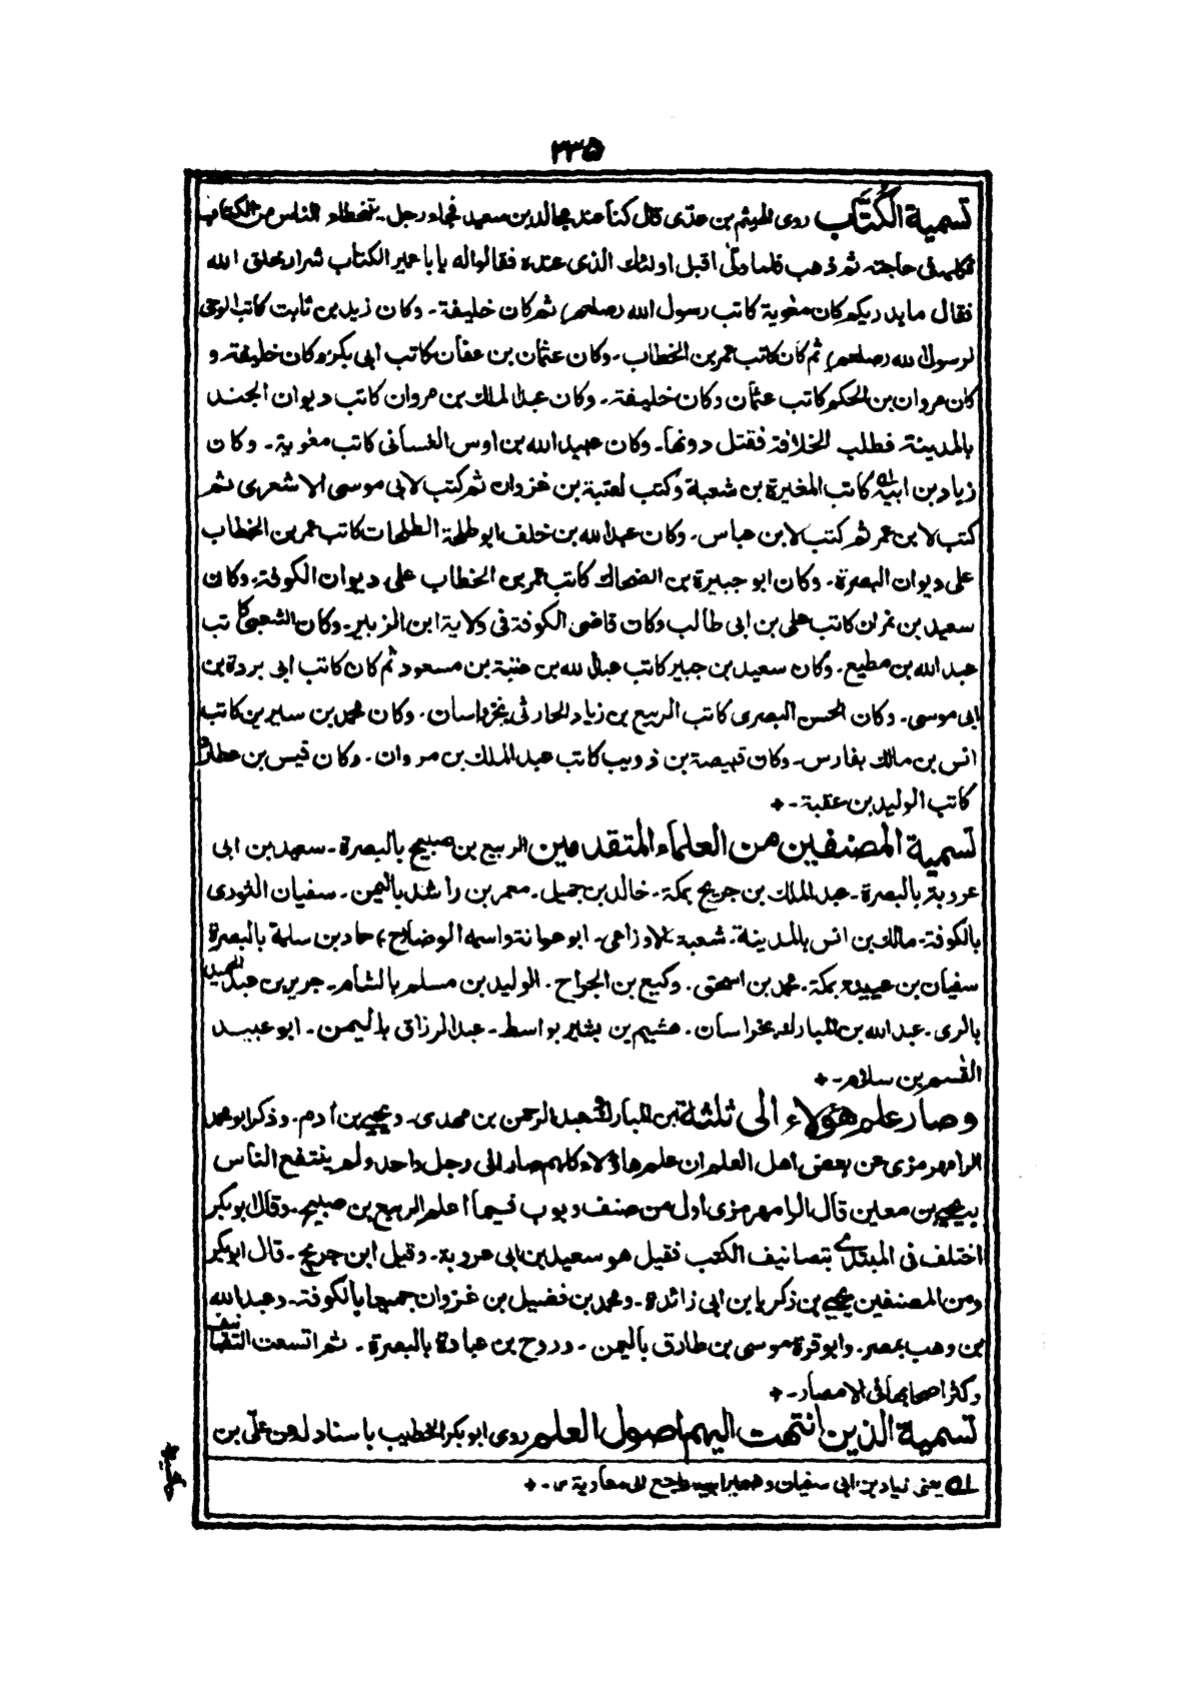 ۲۳۵
تسمية الكُتَّاب روى الهيثم بن عدّى قال كنا عند مجالد بن سعيد فجاءه رجل يتخطا الناس من الكتاب
فكلمه فى حاجته ثم ذهب فلما ولّى اقبل اولئك الذى عنده فقالوا له يا با عمير الكتاب شرار خلق الله
فقال ما يدريكم كان معٰوية كاتب رسول الله (صلعم) ثم كان خليفة۔ وكان زيد بن ثابت كاتب الوحى
لرسول الله (صلعم) ثم كان كاتب عمر بن الخطاب۔ وكان عثمٰن بن عفان كاتب ابى بكر وكان خليفة۔ و
كان مروان بن الحكم كاتب عثمٰن وكان خليفة۔ وكان عبد الملك بن مروان كاتب ديوان الجند
بالمدينة فطلب الخلافة فقتل دونها۔ وكان عبيد الله بن اوس الغسانى كاتب معٰوية۔ وكان
زياد بن ابيه كاتب المغيرة بن شعبة وكتب لعتبة بن غزوان ثم كتب لابى موسى الاشعرى ثم
كتب لابن عمر ثم كتب لابن عباس۔ وكان عبد الله بن خلف ابو طلحة الطلحات كاتب عمر بن الخطاب
على ديوان البصرة۔ وكان ابو جبيرة بن الضحاك كاتب عمر بن الخطاب على ديوان الكوفة۔ وكان
سعيد بن نمران كاتب على بن ابى طالب وكان قاضى الكوفة فى ولاية ابن الزبير۔ وكان الشعبى كاتب
عبد الله بن مطيع۔ وكان سعيد بن جبير كاتب عبد الله بن عتبة بن مسعود ثم كان كاتب ابى بردة بن
ابى موسى۔ وكان الحسن البصرى كاتب الربيع بن زياد الحارثى بخراسان۔ وكان محمد بن سيرين كاتب
انس بن مالك بفارس۔ وكان قبيصة بن ذويب كاتب عبد الملك بن مروان۔ وكان قيس بن
كاتب الوليد بن عقبة۔
تسمية المصنفين من العلماء المتقدمين الربيع بن صبيح بالبصرة۔ سعيد بن ابى
عروبة بالبصرة۔ عبد الملك بن جريج بمكة۔ خالد بن جميل۔ معمر بن راشد باليمن۔ سفيان الثورى
بالكوفة۔ مالك بن انس بالمدينة۔ شعبة۔ الاوزاعى۔ ابو عوانة واسمه الوضاح، حماد بن سلمة بالبصرة
سفيان بن عيينة بمكة۔ محمد بن اسحٰق۔ وكيع بن الجراح۔ الوليد بن مسلم بالشام۔ جرير بن عبد الحميد
بالرى۔ عبد الله بن المبارك بخراسان۔ هشيم بن بشير بواسط۔ عبد الرزاق باليمن۔ ابو عبيد
القٰسم بن سلام۔
وصار علم هؤلاء الى ثلثة بن المبارك وعبد الرحمن بن مهدى۔ ويحيى بن ادم۔ وذكر ابو محمد
الرامهرمزى عن بعض اهل العلم ان علم هاؤلاء كلهم صار الى رجل واحد ولم ينتفع الناس
به يحيى بن معين قال الرامهرمزى اول من صنف وبوب فيما اعلم الربيع بن صبيح۔ وقال ابو بكر
اختلف فى المبتدے بتصانيف الكتب فقيل هو سعيد بن ابى عروبة۔ وقيل ابن جريج۔ قال ابو بكر
ومن المصنفين يحيى بن ذكريا بن ابى زائدة۔ ومحمد بن فضيل بن غزوان جميعا بالكوفة۔ وعبد الله
بن وهب بمصر۔ وابو قرة موسى بن طارق باليمن۔ وروح بن عبادة بالبصرة۔ ثم اتسعت التصانيف
وكثر اصحابها فى الامصار۔
تسمية الذين انتهت اليهم اصول العلم روى ابو بكر الخطيب باسناد له عن علّى بن
لـه يعنى زياد بن ابى سفيان وضمير ابيه راجع الى معاوية